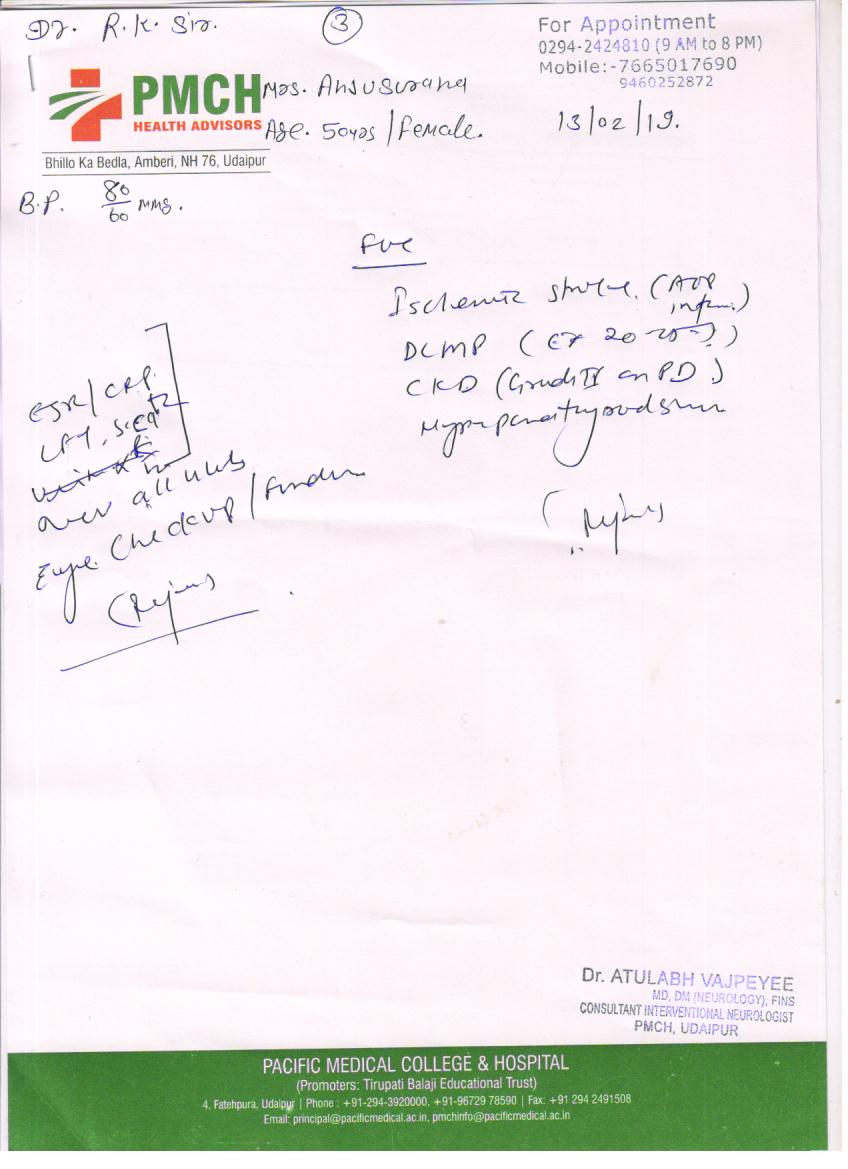 Dr. R.K. Sir.
3
For Appointment
0294-2424810 (9 AM to 8 PM)
Mobile:-7665017690
9460252872
PMCH
HEALTH ADVISORS
Mrs.
Age. 50yrs / Female.
13/02/19.
Bhillo Ka Bedla, Amberi, NH 76, Udaipur
B.P. 80/60 mmg.
Ischemic stroke.
DCMP (EF 20-25 %)
CKD (Grade IV on PD)
ESR/CRP.
LFT, S.
over all
Eye Checkup / Fundus
Dr. ATULABH VAJPEYEE
MD, DM (NEUROLOGY), FINS
CONSULTANT INTERVENTIONAL NEUROLOGIST
PMCH, UDAIPUR
PACIFIC MEDICAL COLLEGE & HOSPITAL
(Promoters: Tirupati Balaji Educational Trust)
4, Fatehpura, Udaipur | Phone : +91-294-3920000, +91-96729 78590 | Fax: +91 294 2491508
Email: principal@pacificmedical.ac.in, pmchinfo@pacificmedical.ac.in